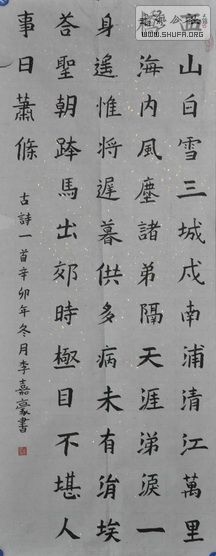 西山白雪三城戍南浦清江萬里
橋海內風塵諸弟隔天涯涕淚一
身遙惟將遲暮供多病未有涓埃
荅聖朝跨馬出郊時極目不堪人
事日蕭條
古詩一首辛卯年冬月李嘉豪書
WWW.SHUFA.ORG